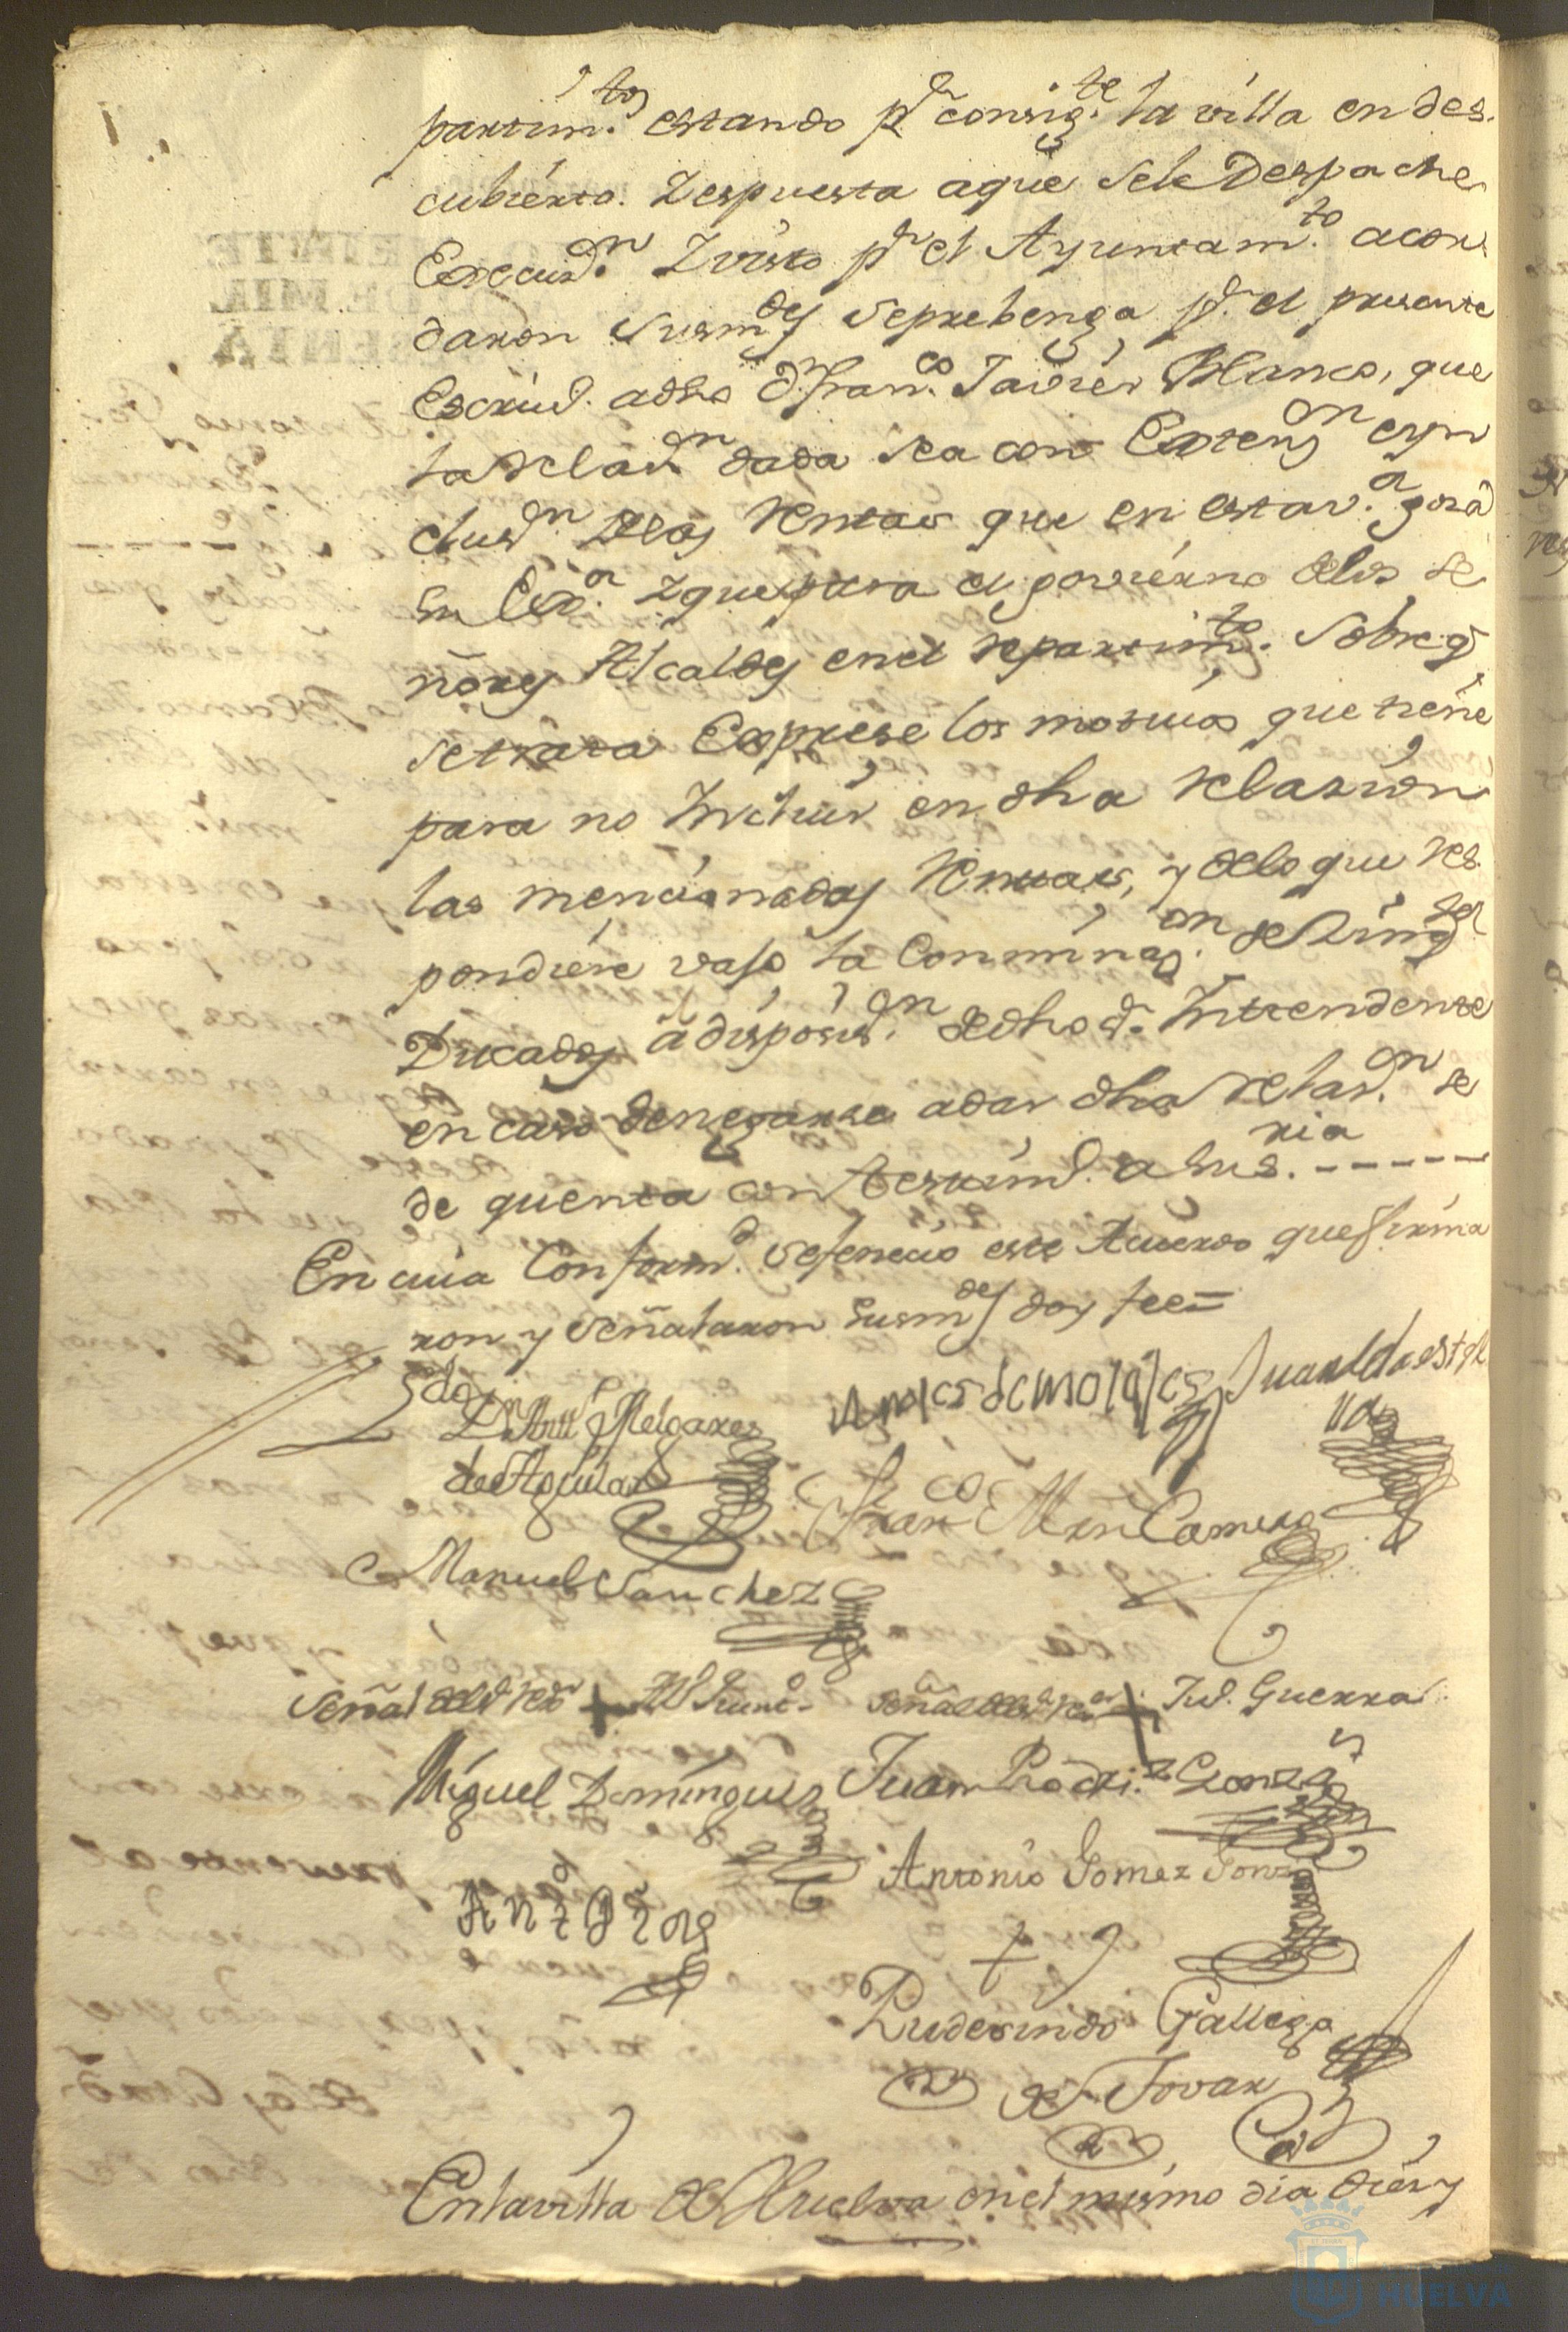 partim.to estando pr consig.te la villa en des-
cubierto. Y espuesta a que se le Despache
Execuz.on Y visto pr el Ayuntam.to acor-
daron susm.des se prebenga pr el presente
Escriv.o a dho Dn Fran.co Javier Blanco, que
la relaz.on dada sea con Extens.on e yn
clus.on de las Rentas que en esta v.a goza
su Ex.a Y que para el govierno de los se
ñores Alcaldes en el repartim.to sobre q
se trata Exprese los motivos que tiene
para no Incluir en dha relazion
las mencionadas Rentas, y de lo que res-
pondiere vajo la Conminaz.on de
Ducados a disposiz.on de dho S.r Intendente
en caso de negarse a dar dha relaz.on se
de quenta con testim.o a su s.ria -----
En cuia Conform.d se feneció este Acuerdo que firma
ron y señalaron susm.des doy fee=
Ldo Dn Melgarejo
de Aguilar
Fran.co Mrn Camero
Manuel Sanchez
Señal del S.r Rex.or + señal del S.r + Jul. Guerra
Miguel Dominguez Juan Rodri.z Gonz.s
Antonio Gomez Gonz
Ruderindo Gallego
de Tovar
En la villa de Huelva en el mismo dia diez y
HUELVA